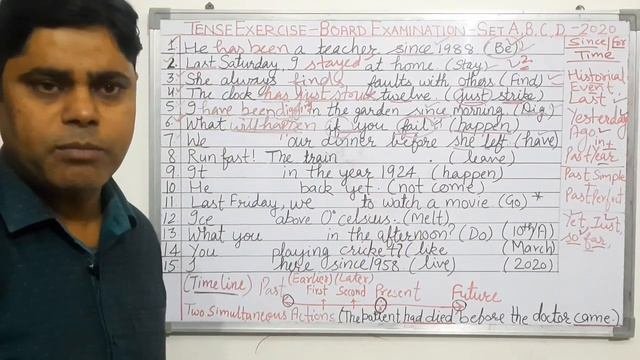 TENSE EXERCISE - BOARD EXAMINATION - SET A, B, C, D - 2020
1 He has been a teacher since 1988 (Be)
2 Last Saturday, I stayed at home. (Stay) 2
3 She always finds faults with others (Find)
4 The clock has just struck twelve. (Just strike)
5 I have been digging in the garden since morning. (Dig)
6 What will happen if you fail? (happen)
7 We our dinner before she left (have)
8 Run fast! The train . (leave)
9 It in the year 1924 (happen)
10 He back yet. (not come)
11 Last Friday, we to watch a movie (Go) *
12 Ice above 0° celsius. (Melt)
13 What you in the afternoon? (Do) (10th/A)
14 You playing cricket? (like (March)
15 I here since 1958 (live) (2020)
Since/For
Time
Historial
Event
Last
Yesterday
Ago
in+
Past/ear
Past Simple
Past Perfect
Yet, Just,
so far,
(Timeline) Past (Earlier) (Later) Present Future
First Second
Two Simultaneous Actions (The patient had died before the doctor came.)